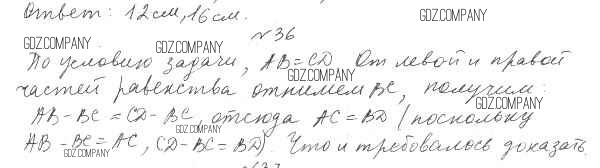 Ответ: 12 см, 16 см.
GDZ.COMPANY
№36
GDZ.COMPANY
GDZ.COMPANY
По условию задачи, AB=CD От левой и правой
GDZ.COMPANY
частей равенства отнимем BC, получим:
GDZ.COMPANY
AB-BC=CD-BC, отсюда AC=BD (поскольку
GDZ.COMPANY
AB-BC=AC, CD-BC=BD). Что и требовалось доказать
GDZ.COMPANY